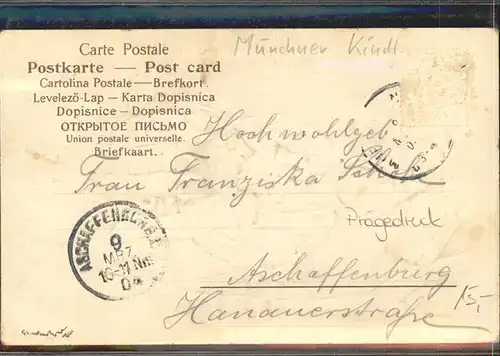 Carte Postale
Postkarte — Post card
Cartolina Postale — Brefkort.
Levelező-Lap — Karta Dopisnica
Dopisnice - Dopisnica
ОТКРЫТОЕ ПИСЬМО
Union postale universelle.
Briefkaart.
Münchner Kindl
Hochwohlgeb
Frau Franziska
Prägedruck
Aschaffenburg
Hanauerstraße
15,-
ASCHAFFENBURG
9
MRZ
10-11
04